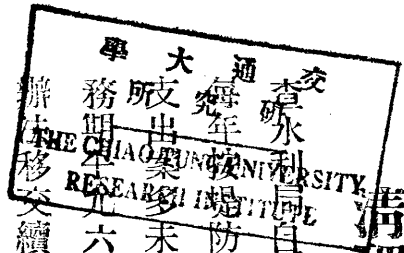 交通大學
研究所
THE CHIAO TUNG UNIVERSITY
RESEARCH INSTITUTE
清
查水利局自
每年按堤防
支出案多未
務期六
辦法移交續